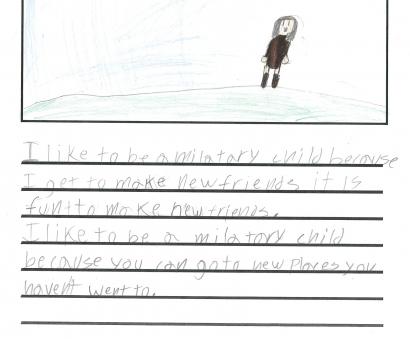 I like to be a milatary child because
I get to make new friends it is
fun to make new friends.
I like to be a milatory child
because you can go to new places you
haven't went to.